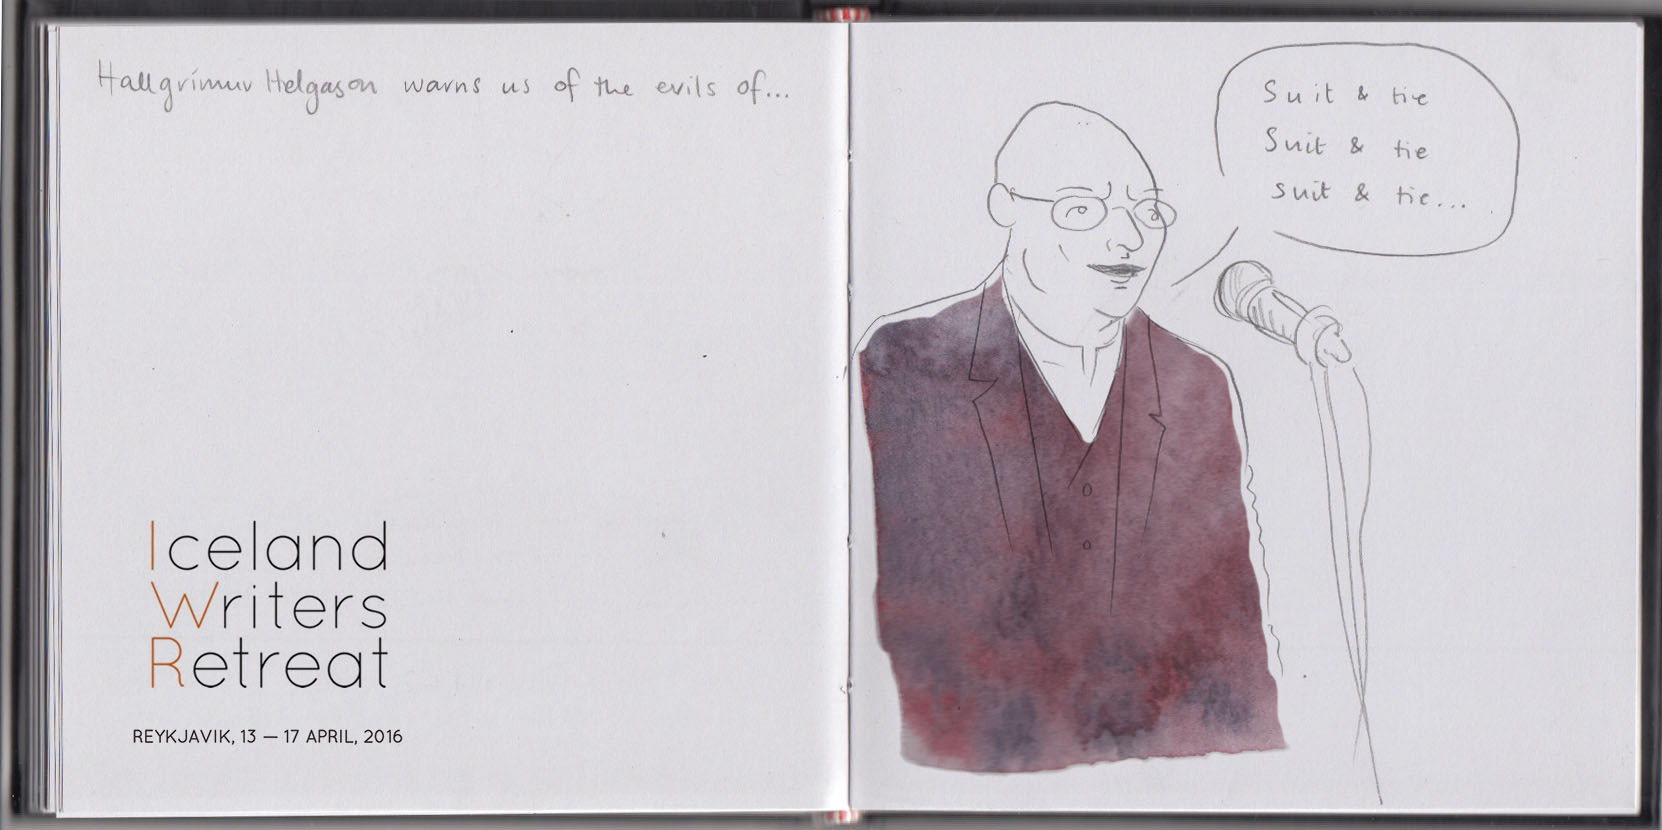 Hallgrímur Helgason warns us of the evils of...
Suit & tie
Suit & tie
suit & tie...
Iceland
Writers
Retreat
REYKJAVIK, 13 — 17 APRIL, 2016